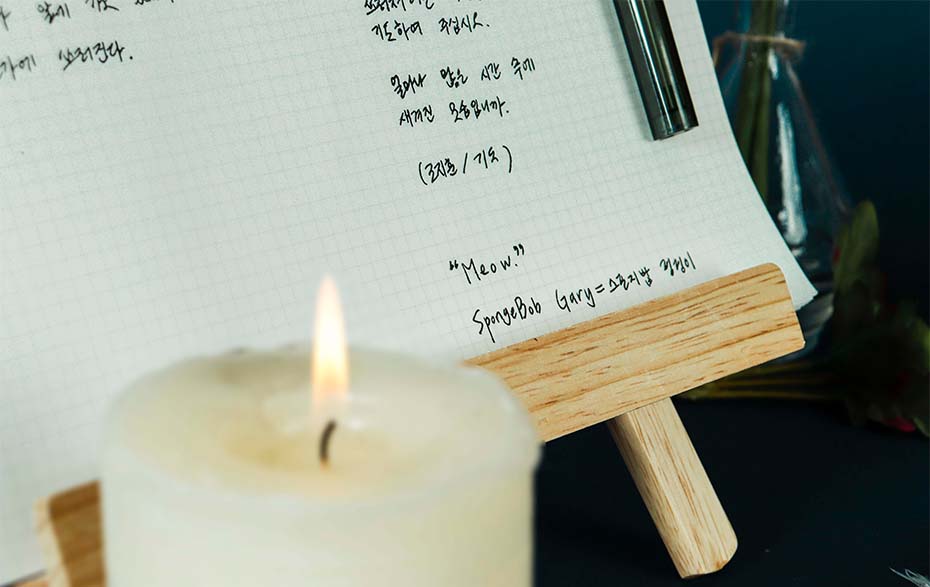 가에 쓰러진다.
기도하여 주십시오.
얼마나 많은 시간 속에
새겨진 모습입니까.
(조지훈 / 기도)
“Meow.”
SpongeBob Gary=스폰지밥